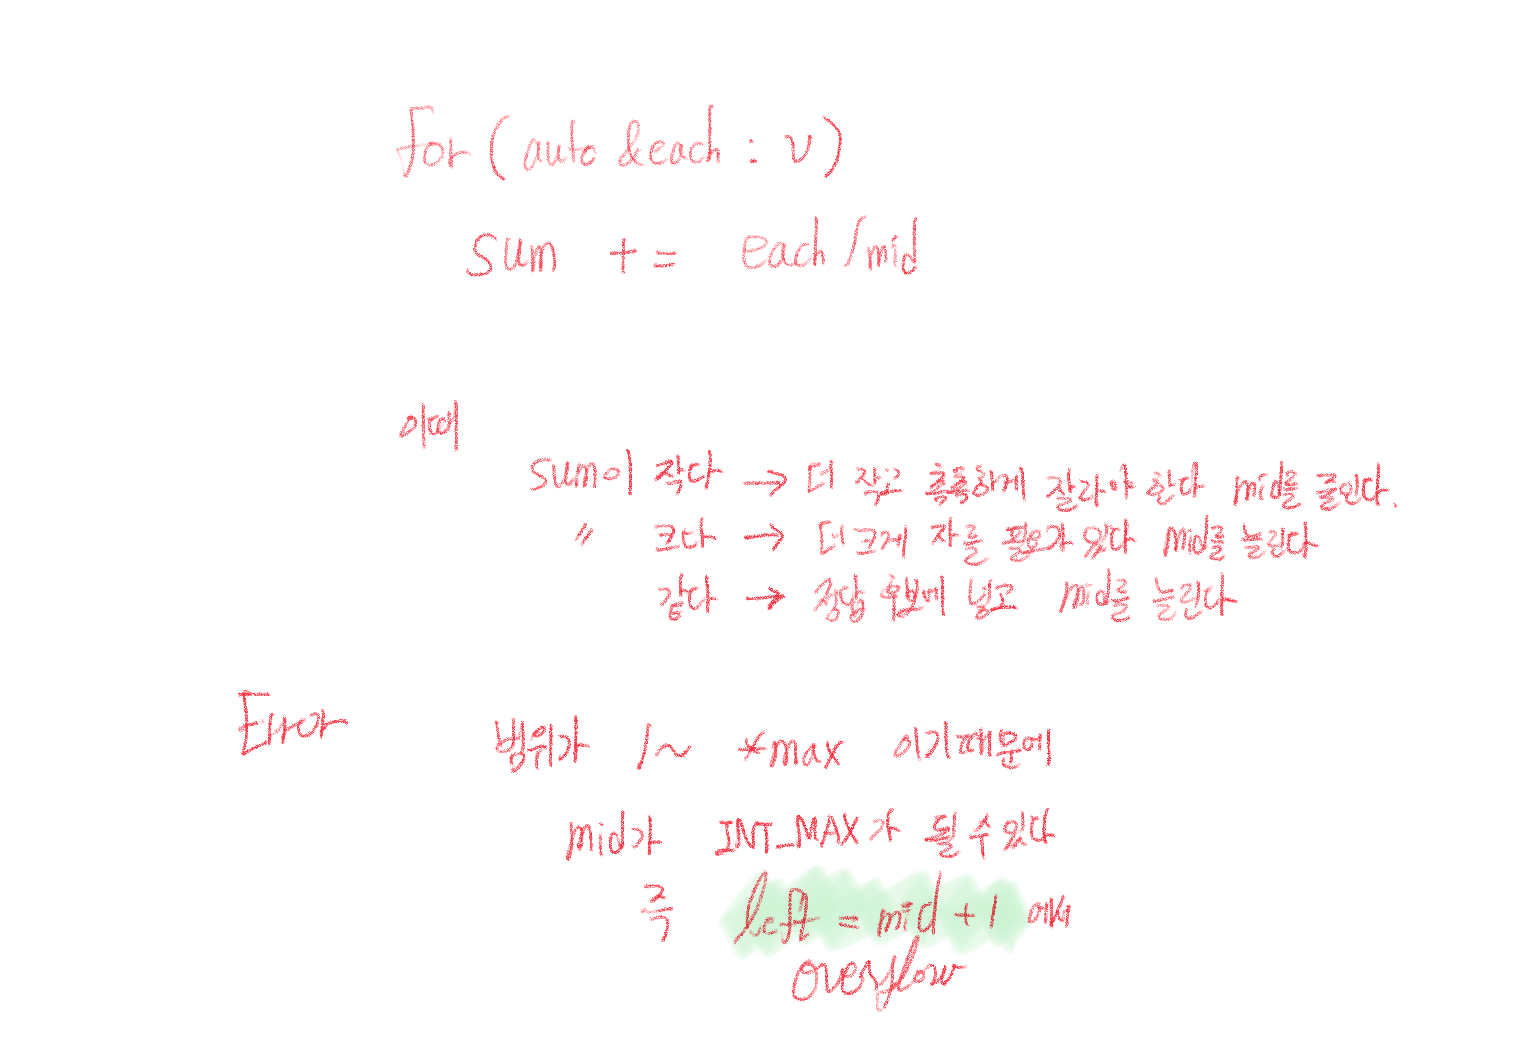 for (auto &each : v)
sum += each/mid
이때
sum이 작다 → 더 작고 촉촉하게 잘라야 한다 mid를 줄인다.
〃 크다 → 더 크게 자를 필요가 있다 mid를 늘린다
같다 → 정답 후보에 넣고 mid를 늘린다
Error 범위가 1~ *max 이기때문에
mid가 INT_MAX가 될 수 있다
즉 left = mid + 1 에서
overflow